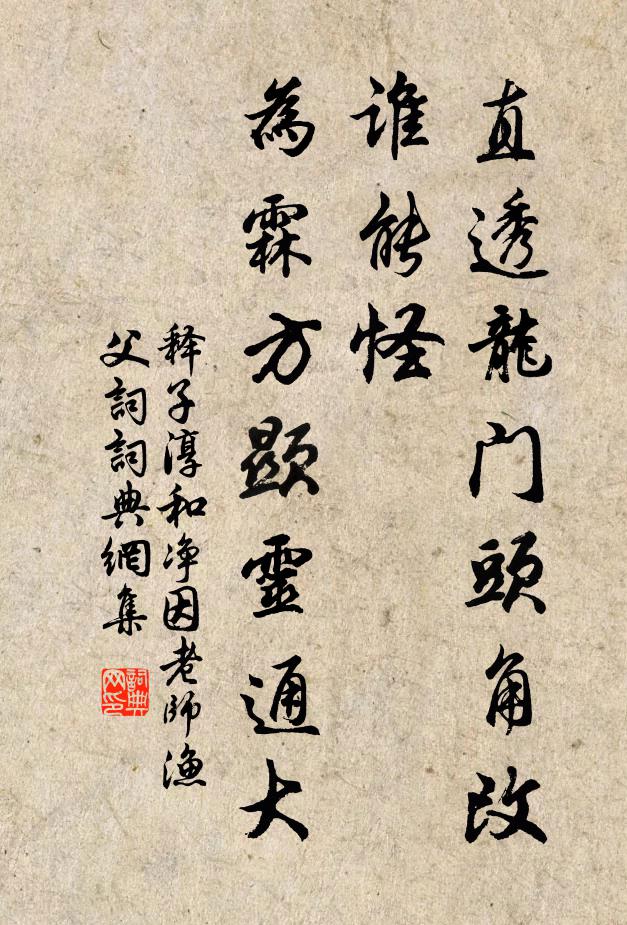 直透龍门頭角改
谁能怪
為霖方顯靈通大
释子淳和净因老師漁
父詞詞典網集
詞典
网印